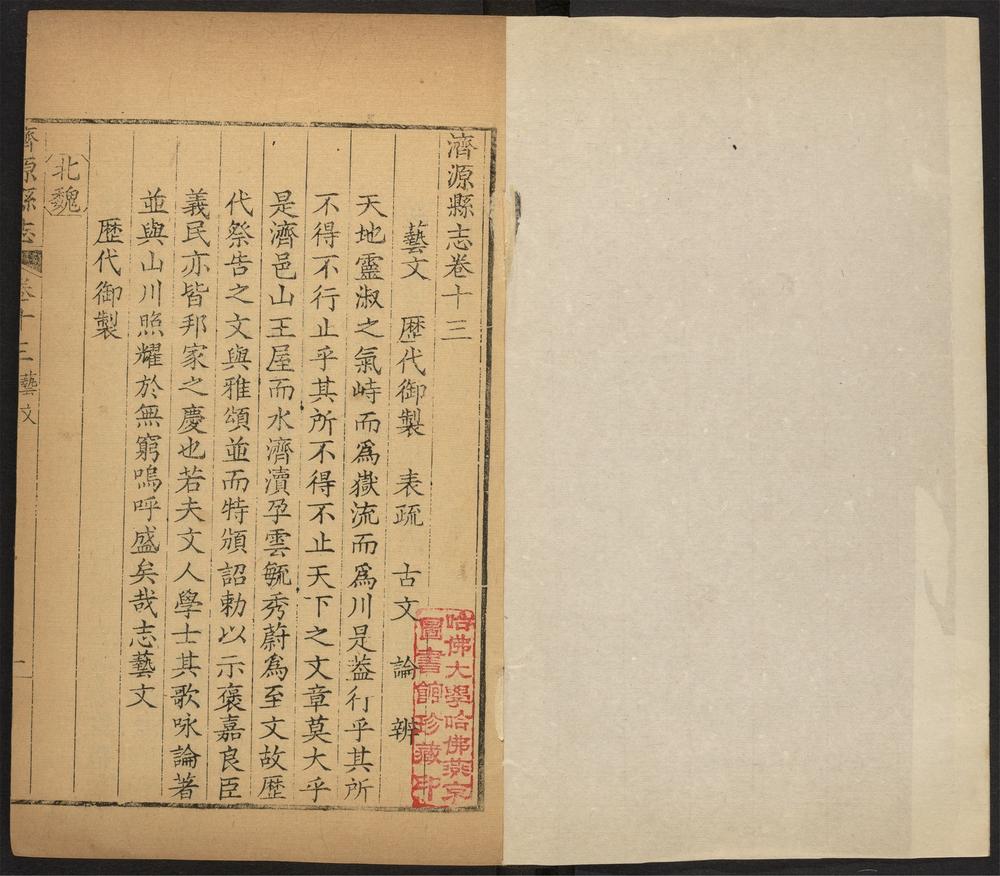 濟源縣志卷十三
藝文 歷代御製 表疏 古文 論 辨
天地靈淑之氣峙而爲嶽流而爲川是葢行乎其所
不得不行止乎其所不得不止天下之文章莫大乎
是濟邑山王屋而水濟瀆孕雲毓秀蔚爲至文故歷
代祭告之文與雅頌並而特頒詔勅以示褒嘉良臣
義民亦皆邦家之慶也若夫文人學士其歌咏論著
並與山川照耀於無窮嗚呼盛矣哉志藝文
歷代御製
北魏
濟源縣志 卷十三 藝文 一
哈佛大學哈佛燕京
圖書館珍藏印